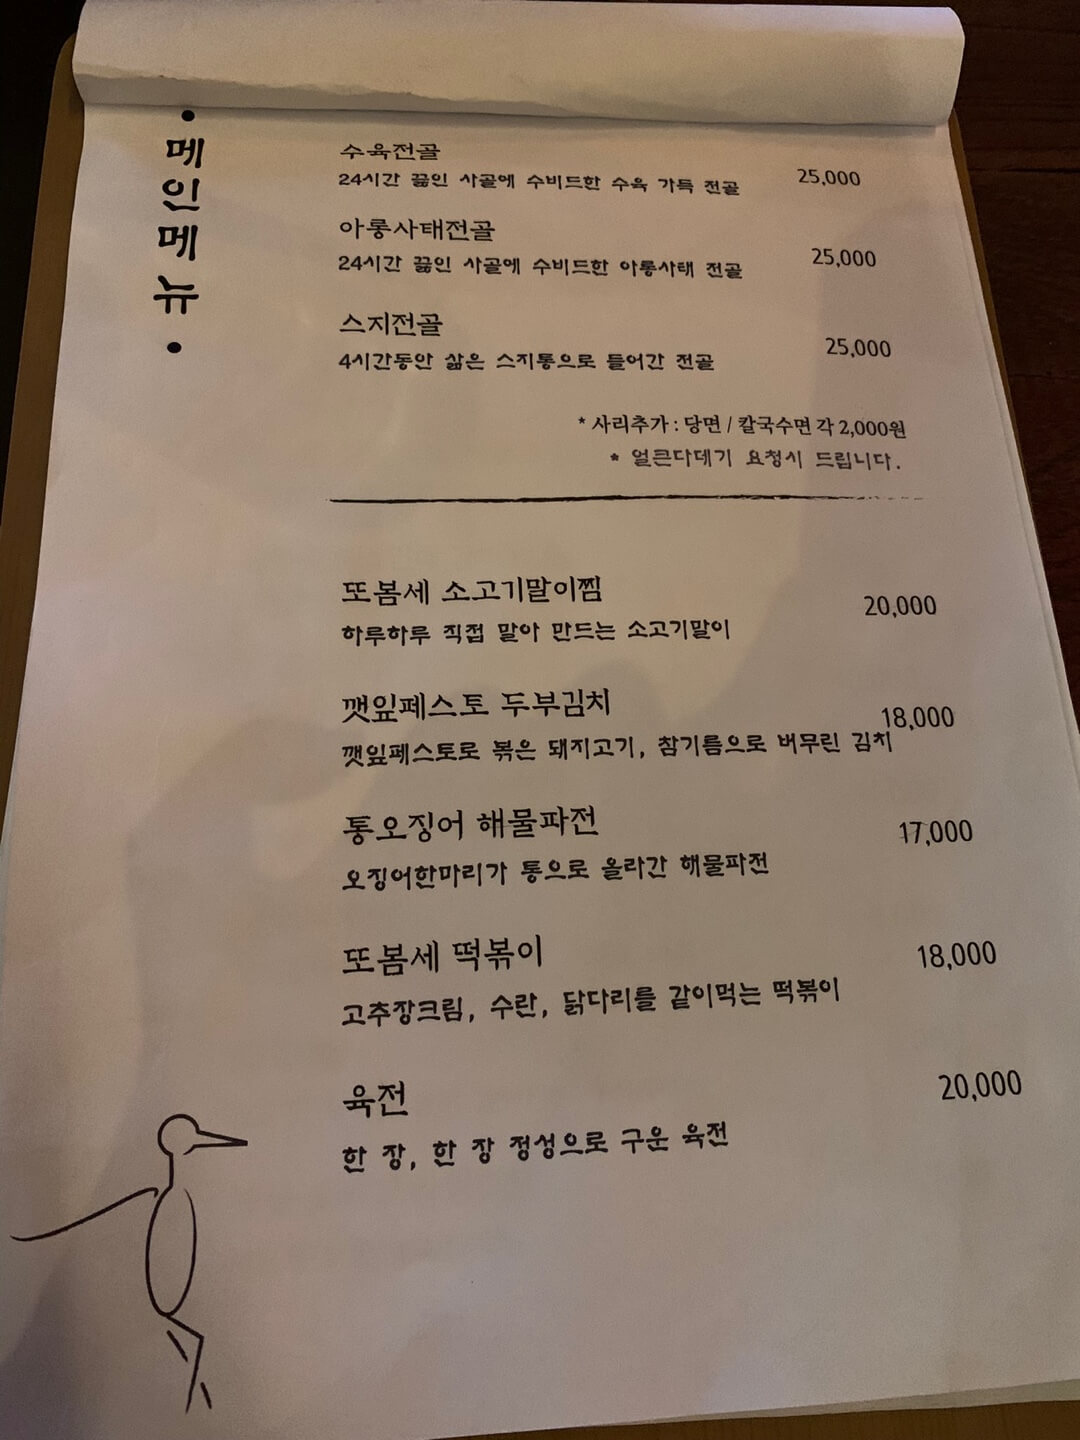 • 메인메뉴 •
수육전골
24시간 끓인 사골에 수비드한 수육 가득 전골 25,000
아롱사태전골
24시간 끓인 사골에 수비드한 아롱사태 전골 25,000
스지전골
4시간동안 삶은 스지통으로 들어간 전골 25,000
* 사리추가 : 당면 / 칼국수면 각 2,000원
* 얼큰다데기 요청시 드립니다.
또봄세 소고기말이찜 20,000
하루하루 직접 말아 만드는 소고기말이
깻잎페스토 두부김치 18,000
깻잎페스토로 볶은 돼지고기, 참기름으로 버무린 김치
통오징어 해물파전 17,000
오징어한마리가 통으로 올라간 해물파전
또봄세 떡볶이 18,000
고추장크림, 수란, 닭다리를 같이먹는 떡볶이
육전 20,000
한 장, 한 장 정성으로 구운 육전